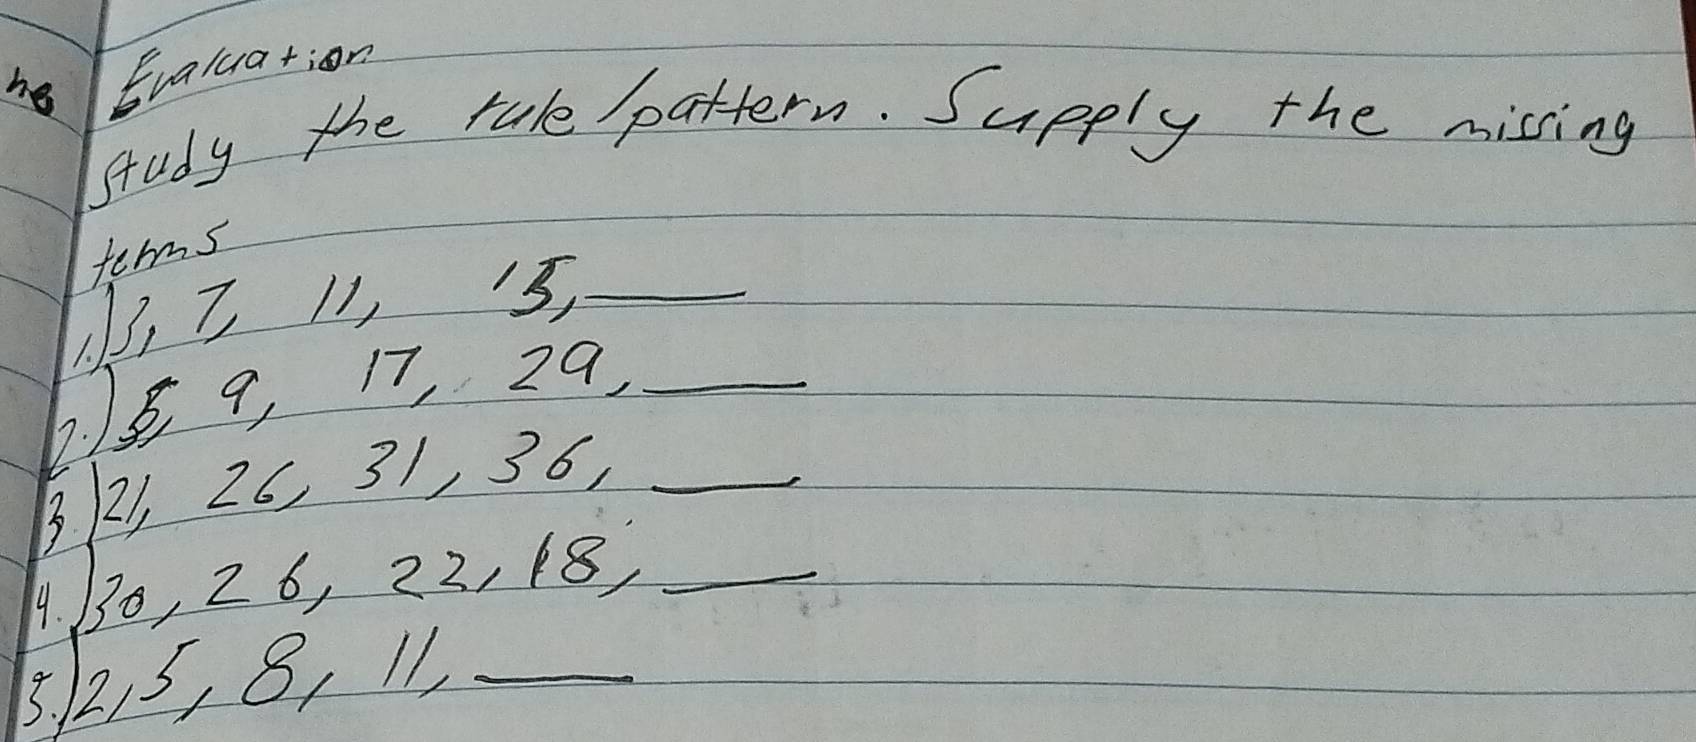 he
Evaluation
study the rule/pattern. Supply the missing
terms
1.) 3, 7, 11, 15, ___
2.) 5, 9, 17, 29, ___
3.) 21, 26, 31, 36, ___
4.) 30, 26, 22, 18, ___
5.) 2, 5, 8, 11, ___